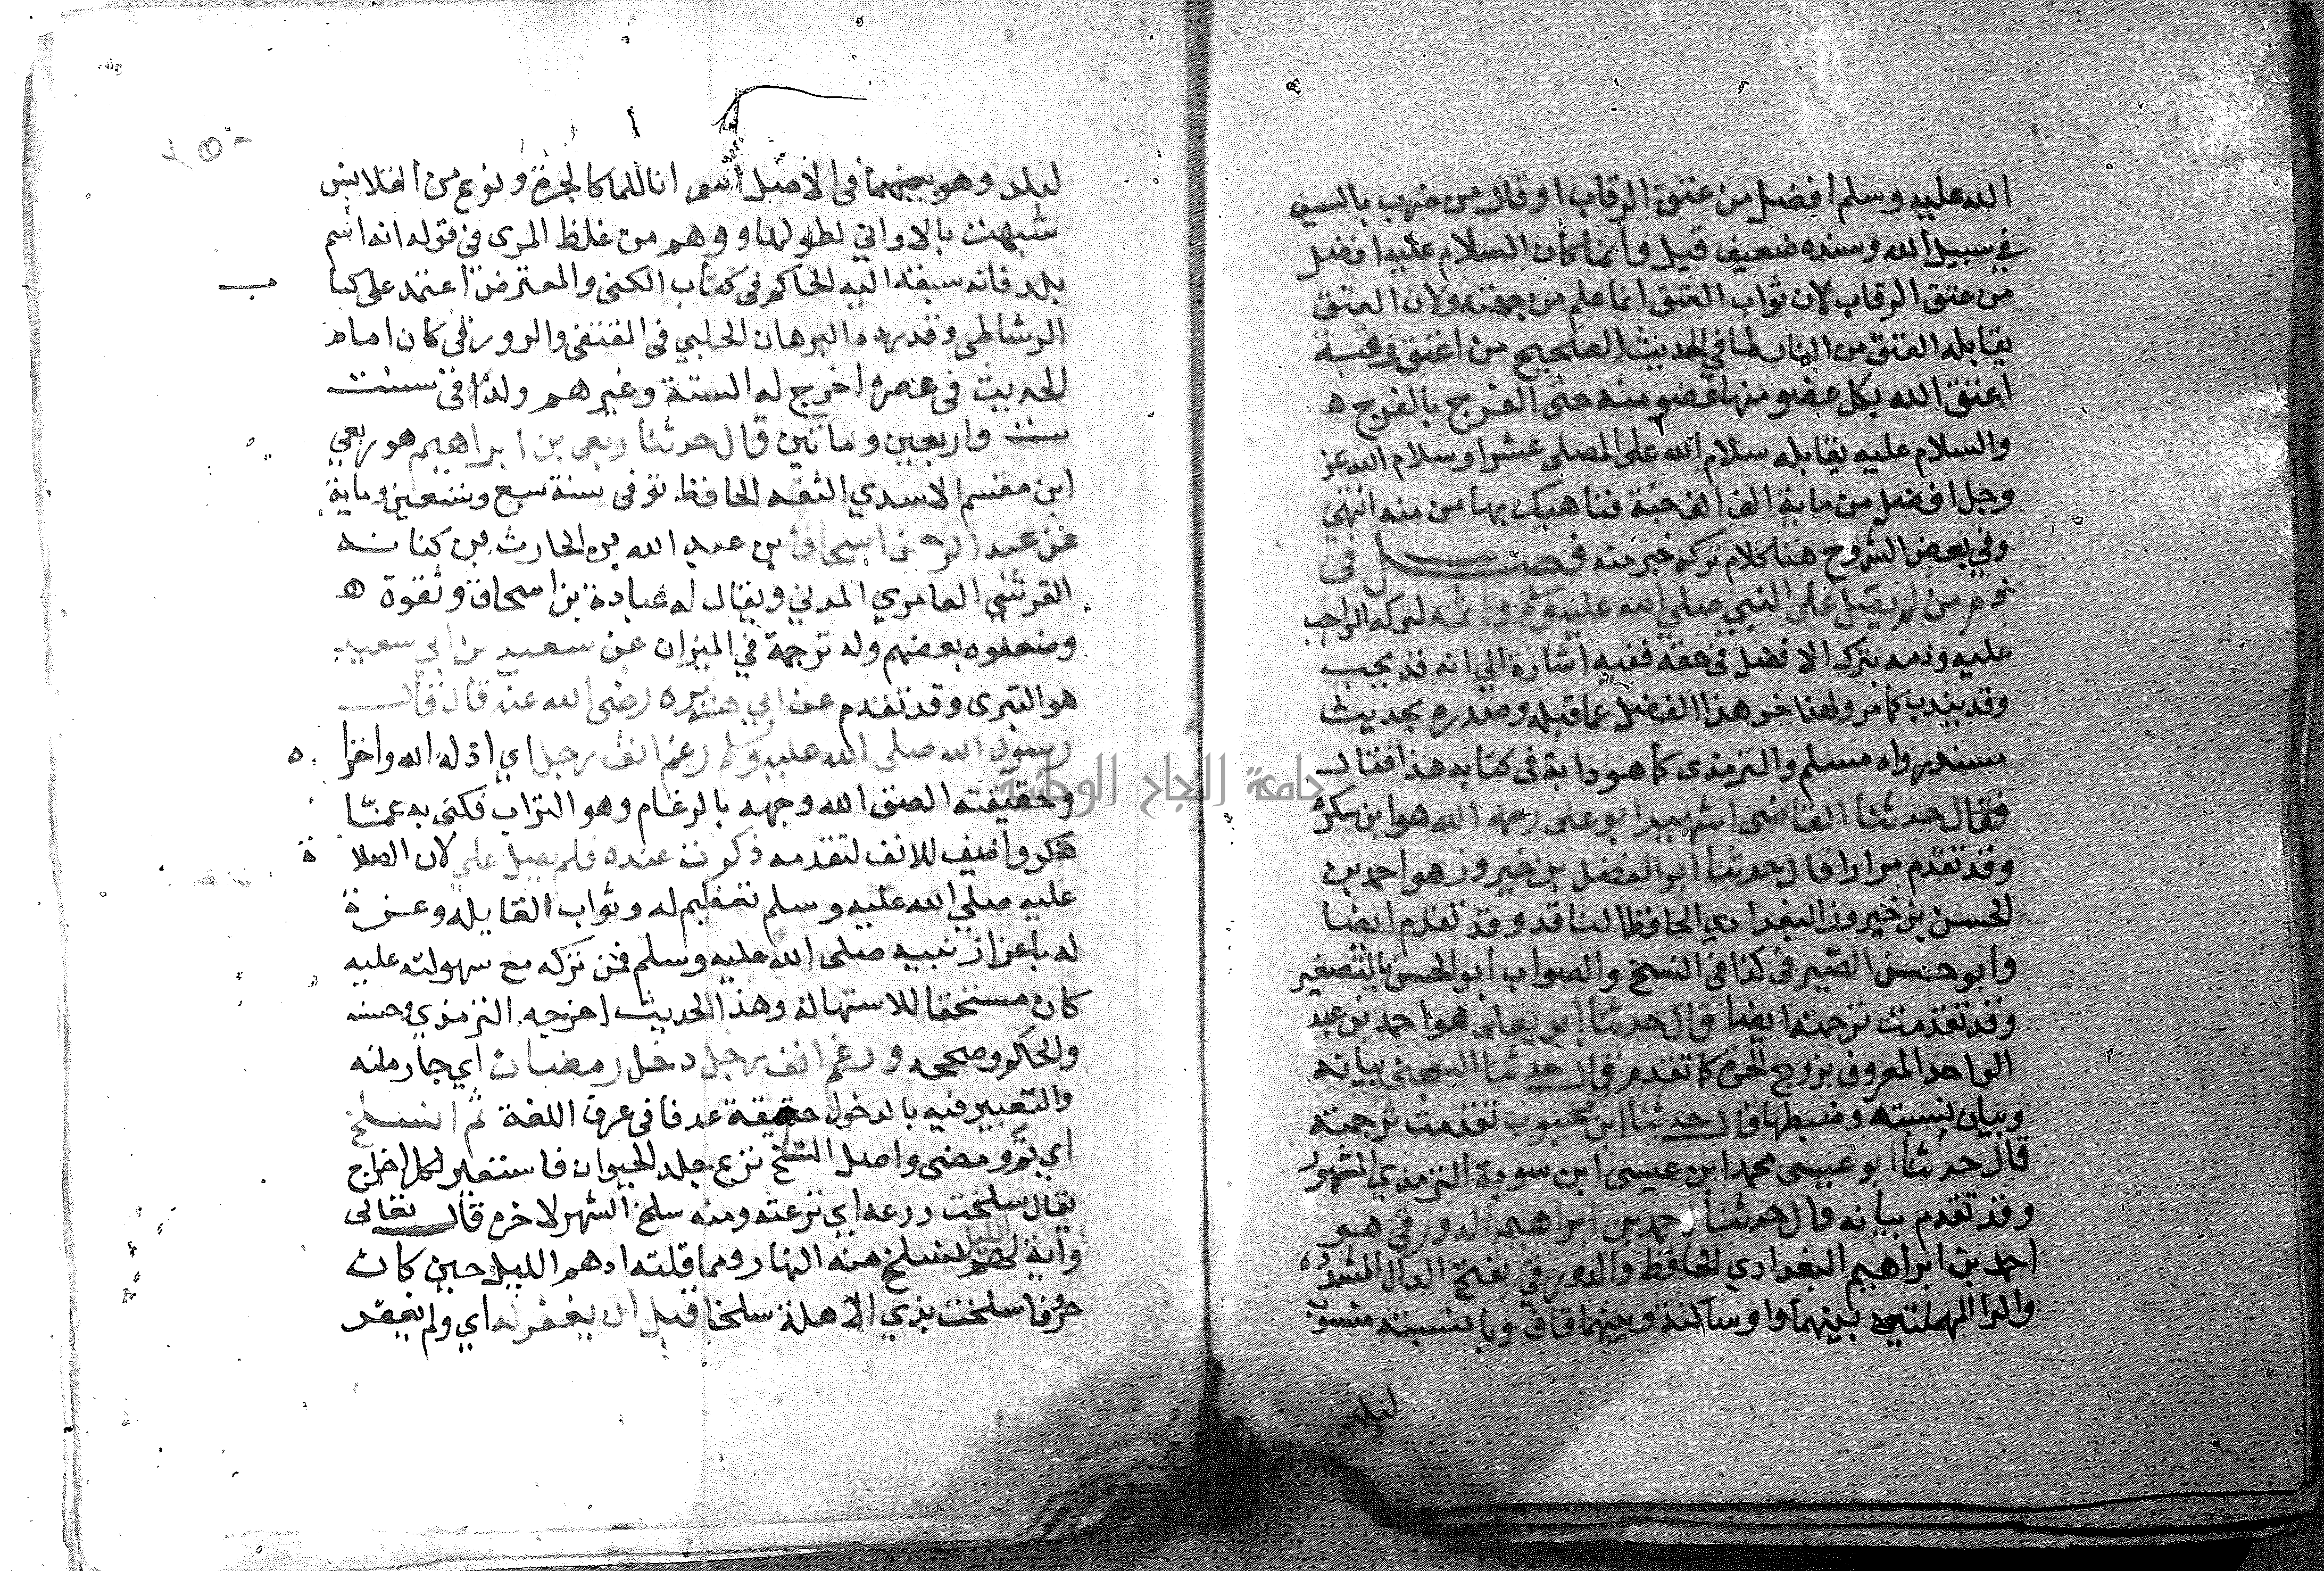 الله عليه وسلم افضل من عتق الرقاب اوقال من ضرب بالسيف
في سبيل الله وسنده ضعيف قيل وانما كان السلام عليه افضل
من عتق الرقاب لان ثواب العتق انما علم من جهته ولان العتق
يقابله العتق من النار لما في الحديث الصحيح من اعتق رقبة
اعتق الله بكل عضو منها عضو منه حتى الفرج بالفرج ه
والسلام عليه يقابله سلام الله على المصلى عشرا وسلام الله عز
وجل افضل من ماية الف الف حبة فناهيك بها من منه انتهى
وفي بعض الشروح هنا كلام تركه خير منه فصل في
ذم من لم يصل على النبي صلي الله عليه وسلم واثمه لتركه الواجب
عليه وذمه بتركه الافضل في حقه ففيه اشارة الي انه قد يجب
وقد يندب كما مر ولهذا اخر هذا الفصل عما قبله وصدره بحديث
مسند رواه مسلم والترمذى كما هو دابة فى كتابه هذا فقال
فقال حدثنا القاضى الشهيد ابو على رحمه الله هو ابن سكرة
وقد تقدم مرارا قال حدثنا ابو الفضل بن خيرون هو احمد بن
الحسن بن خيرون البغدادي الحافظ الناقد وقد تقدم ايضا
وابو حسن الصيرفى كذا فى النسخ والصواب ابو الحسن بالتصغير
وقد تقدمت ترجمته ايضا قال حدثنا ابو يعلى هو احمد بن عبد
الواحد المعروف بزوج الحرة كما تقدم قال حدثنا السبخى بيانه
وبيان نسبته وضبطها قال حدثنا ابن محبوب تقدمت ترجمته
قال حدثنا ابو عيسى محمد ابن عيسى ابن سورة الترمذي المشهور
وقد تقدم بيانه قال حدثنا احمد بن ابراهيم الدورقى هو
احمد بن ابراهيم البغدادي الحافظ والدورقي بفتح الدال المشدده
والرا المهملتين بينهما واو ساكنة وبينهما قاف ويا نسبته منسوب
لبلد
لبلد وهو بينهما فى الاصل اسم انا للما كالجرة ونوع من القلانس
شبهت بالاواني لطولها ووهم من غلظ المزى في قوله انه اسم
بلد فانه سبقه اليه الحاكم فى كتاب الكنى والمعترض اعتمد على كتا ب
الرشاطى وقد رده البرهان الحلبي فى المقتفى والدورقى كان امام
الحديث فى عصره اخرج له الستة وغيرهم ولذا فى سنت
ست واربعين ومائتين قال حدثنا ربعى بن ابراهيم هو ربعي
ابن مقسم الاسدي الثقه الحافظ توفى سنة سبع وتسعين وماية
عن عبد الرحمن اسحاق بن عبد الله بن الحارث بن كنانه
القرشي العامري المدني ويقال له عبادة بن اسحاق وثقوه ه
وضعفوه بعضهم وله ترجمة في الميزان عن سعيد بن ابي سعيد
هو المقبرى وقد تقدم عن ابي هريره رضى الله عنه قال قال
رسول الله صلى الله عليه وسلم رغم انف رجل اي اذله الله واخزا ه
وحقيقته الصق الله وجهه بالرغام وهو التراب فكنى به عمّا
ذكر واضيف للانف لتقدمه ذكرت عنده فلم يصل علي لان الصلا ة
عليه صلي الله عليه وسلم تعظيم له وثواب القايله وعزة
له باعزاز نبيه صلى الله عليه وسلم فمن تركه مع سهولته عليه
كان مستحقا للاستهانة وهذا الحديث اخرجه الترمذي وحسنه
والحاكم وصححه ورغم انف رجل دخل رمضان اي جا زمنه
والتعبير فيه بالدخول حقيقة عرفا فى عرف اللغة ثم انسلخ
اي تم ومضى واصل السلخ نزع جلد الحيوان فاستعير لكل اخراج
يقال سلخت درعه اي نزعته ومنه سلخ الشهر لاخره قال تعالى
واية لهم الليل نسلخ منه النهار ومما قلته ادهم الليل حين كان
حرفا سلخت بذي الاهلة سلخا قبل ان يغفر له اي ولم يفقد